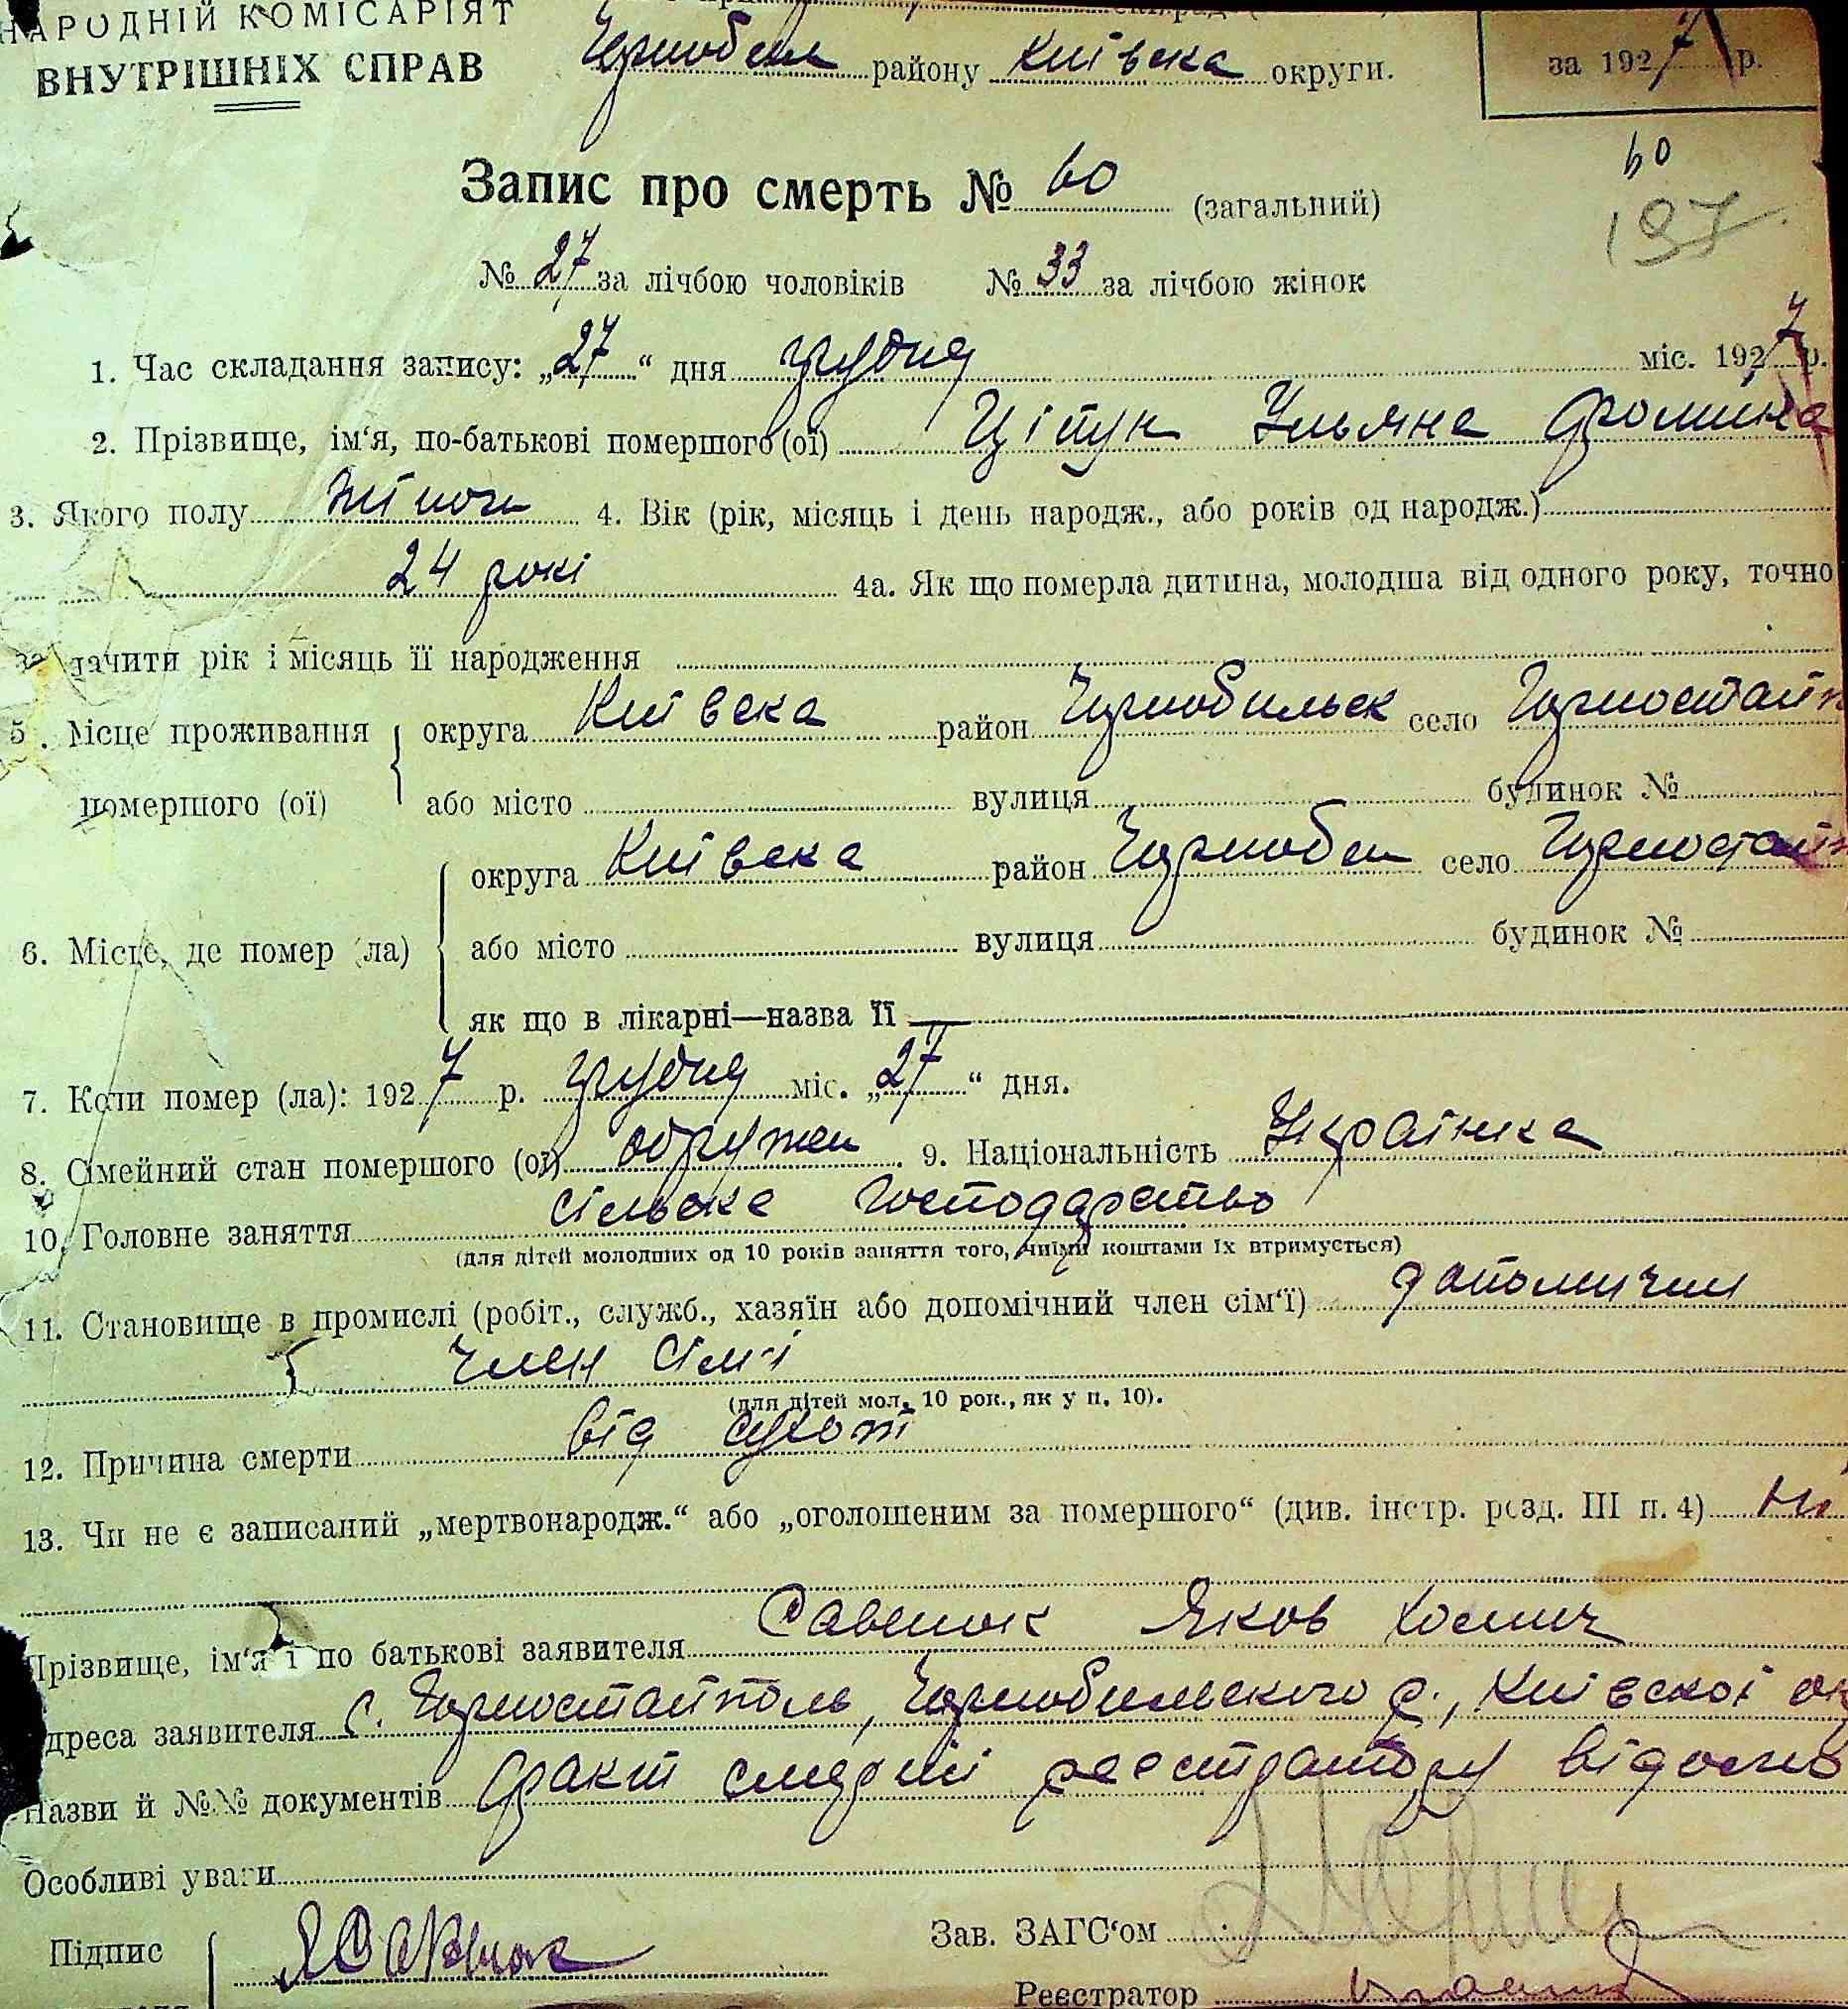 НАРОДНІЙ КОМІСАРІЯТ
ВНУТРІШНІХ СПРАВ
Чорнобил району Київска округи.
за 1927 р.
60
Запис про смерть № 60 (загальний)
197
№ 27 за лічбою чоловіків № 33 за лічбою жінок
1. Час складання запису: „27“ дня грудня міс. 1927 р.
2. Прізвище, ім‘я, по-батькові помершого (ої) Ціпук Ульяна
3. Якого полу жіноч 4. Вік (рік, місяць і день народж., або років од народж.)
24 рокі 4а. Як що померла дитина, молодша від одного року, точно
зазначити рік і місяць її народження
5. Місце проживання округа Київска район Чорнобильск село Горностайп
помершого (ої) або місто вулиця будинок №
округа Київска район Чорнобил село Горностайп
6. Місце, де помер (ла) або місто вулиця будинок №
як що в лікарні—назва її —
7. Коли помер (ла): 1927 р. грудня міс. „27“ дня.
8. Сімейний стан помершого (ої) одружен 9. Національність Українка
10. Головне заняття сільске господарство
(для дітей молодших од 10 років заняття того, чиїми коштами їх втримується)
11. Становище в промислі (робіт., служб., хазяїн або допомічний член сім‘ї) допомічни
член сім'ї
(для дітей мол. 10 рок., як у п. 10).
12. Причина смерти від сухот
13. Чи не є записаний „мертвонародж.“ або „оголошеним за помершого“ (див. інстр. розд. III п. 4) Ні
Прізвище, ім‘я і по батькові заявителя Савенок Яков
дреса заявителя с. Горностайполь, Чорнобильского р., Київскої ок
Назви й №№ документів факт смерти реєстратору відомо
Особливі уваги
Підпис ЯСавенок Зав. ЗАГС‘ом
Реєстратор